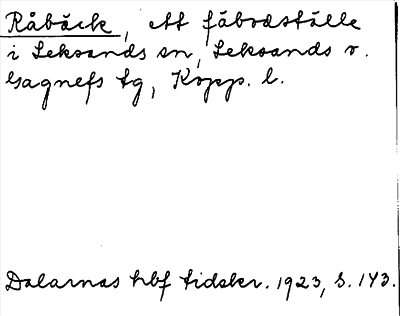 Råbäck, ett fäbodställe
i Leksands sn, Leksands o.
Gagnefs tg, Kopp. l.
Dalarnas hbf tidskr. 1923, s. 143.